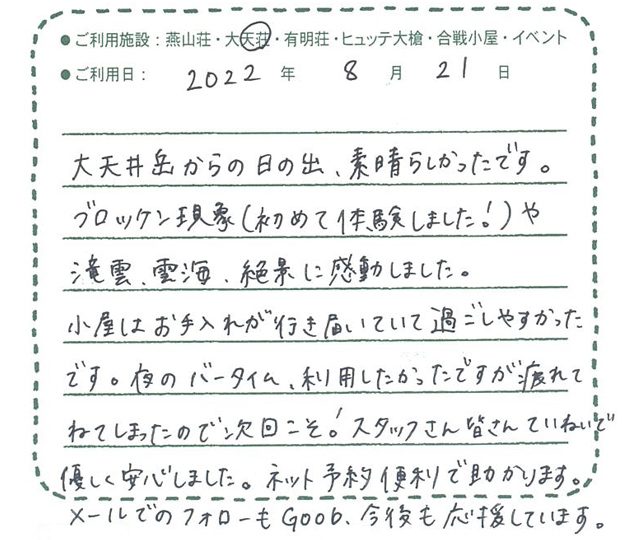 ●ご利用施設：燕山荘・大天荘・有明荘・ヒュッテ大槍・合戦小屋・イベント
●ご利用日： 2022 年 8 月 21 日
大天井岳からの日の出、素晴らしかったです。
ブロッケン現象(初めて体験しました!)や
滝雲、雲海、絶景に感動しました。
小屋はお手入れが行き届いていて過ごしやすかった
です。夜のバータイム、利用したかったですが疲れて
ねてしまったので次回こそ!スタッフさん皆さんていねいで
優しく安心しました。ネット予約便利で助かります。
メールでのフォローもGOOD、今後も応援しています。